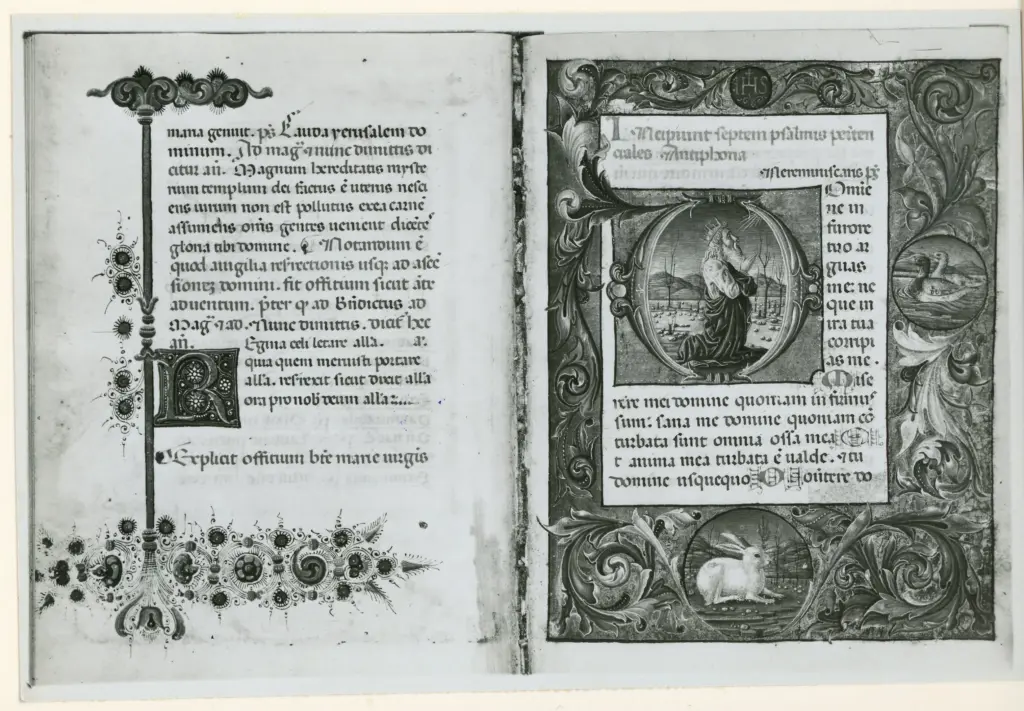 mana genuit. ps Lauda yerusalem do
minum. Ad mag͂ ⁊ nunc dimittis di
citur an͂. Magnum hereditatis myste
rium templum dei factus ē uterus nesci
ens uirum non est pollutus ex ea carnē
assumens om̄s gentes uenient dicētes
gloria tibi domine. Notandum ē
quod a uigilia resrectionis usq; ad ascē
sionez domini. fit offitium sicut ātē
aduentum. p̄ter q̄ ad B̄ndictus ad
Mag͂ ⁊ ad Nunc dimittis. dicit̄ hec
an͂. Regina celi letare alla. a.
quia quem meruisti portare
alla. resrexit sicut dixit alla
ora pro nob̄ deum alla
Explicit offitium bt̄e marie uirgis
IHS
Incipiunt septem psalmis peniten
ciales Antiphona
Ne reminiscaris ps̄
Domie
ne in
furore
tuo ar
guas
me: ne
que in
ira tua
corripi
as me.
Mise
rere mei domine quoniam infirmus
sum: sana me domine quoniam cō
turbata sunt omnia ossa mea E
t anima mea turbata ē ualde. ⁊ tu
domine usquequo Conuertere do